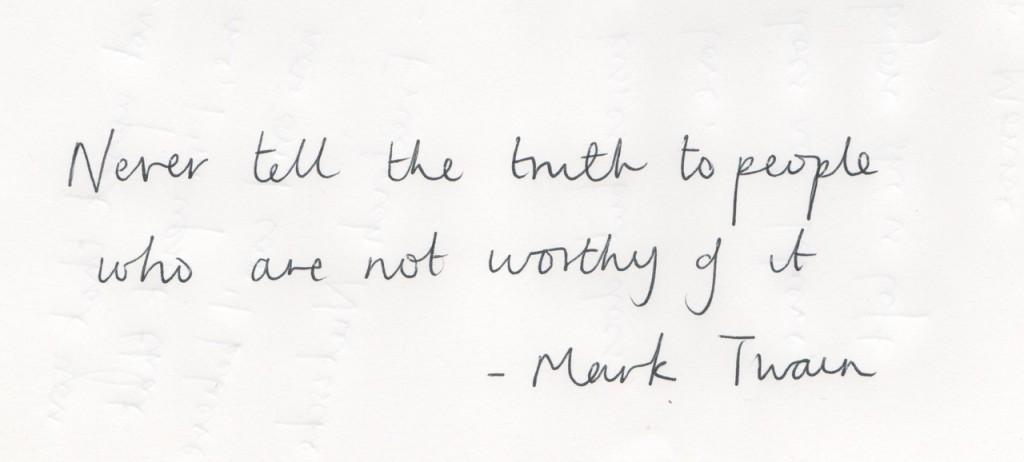 Never tell the truth to people
who are not worthy of it
- Mark Twain